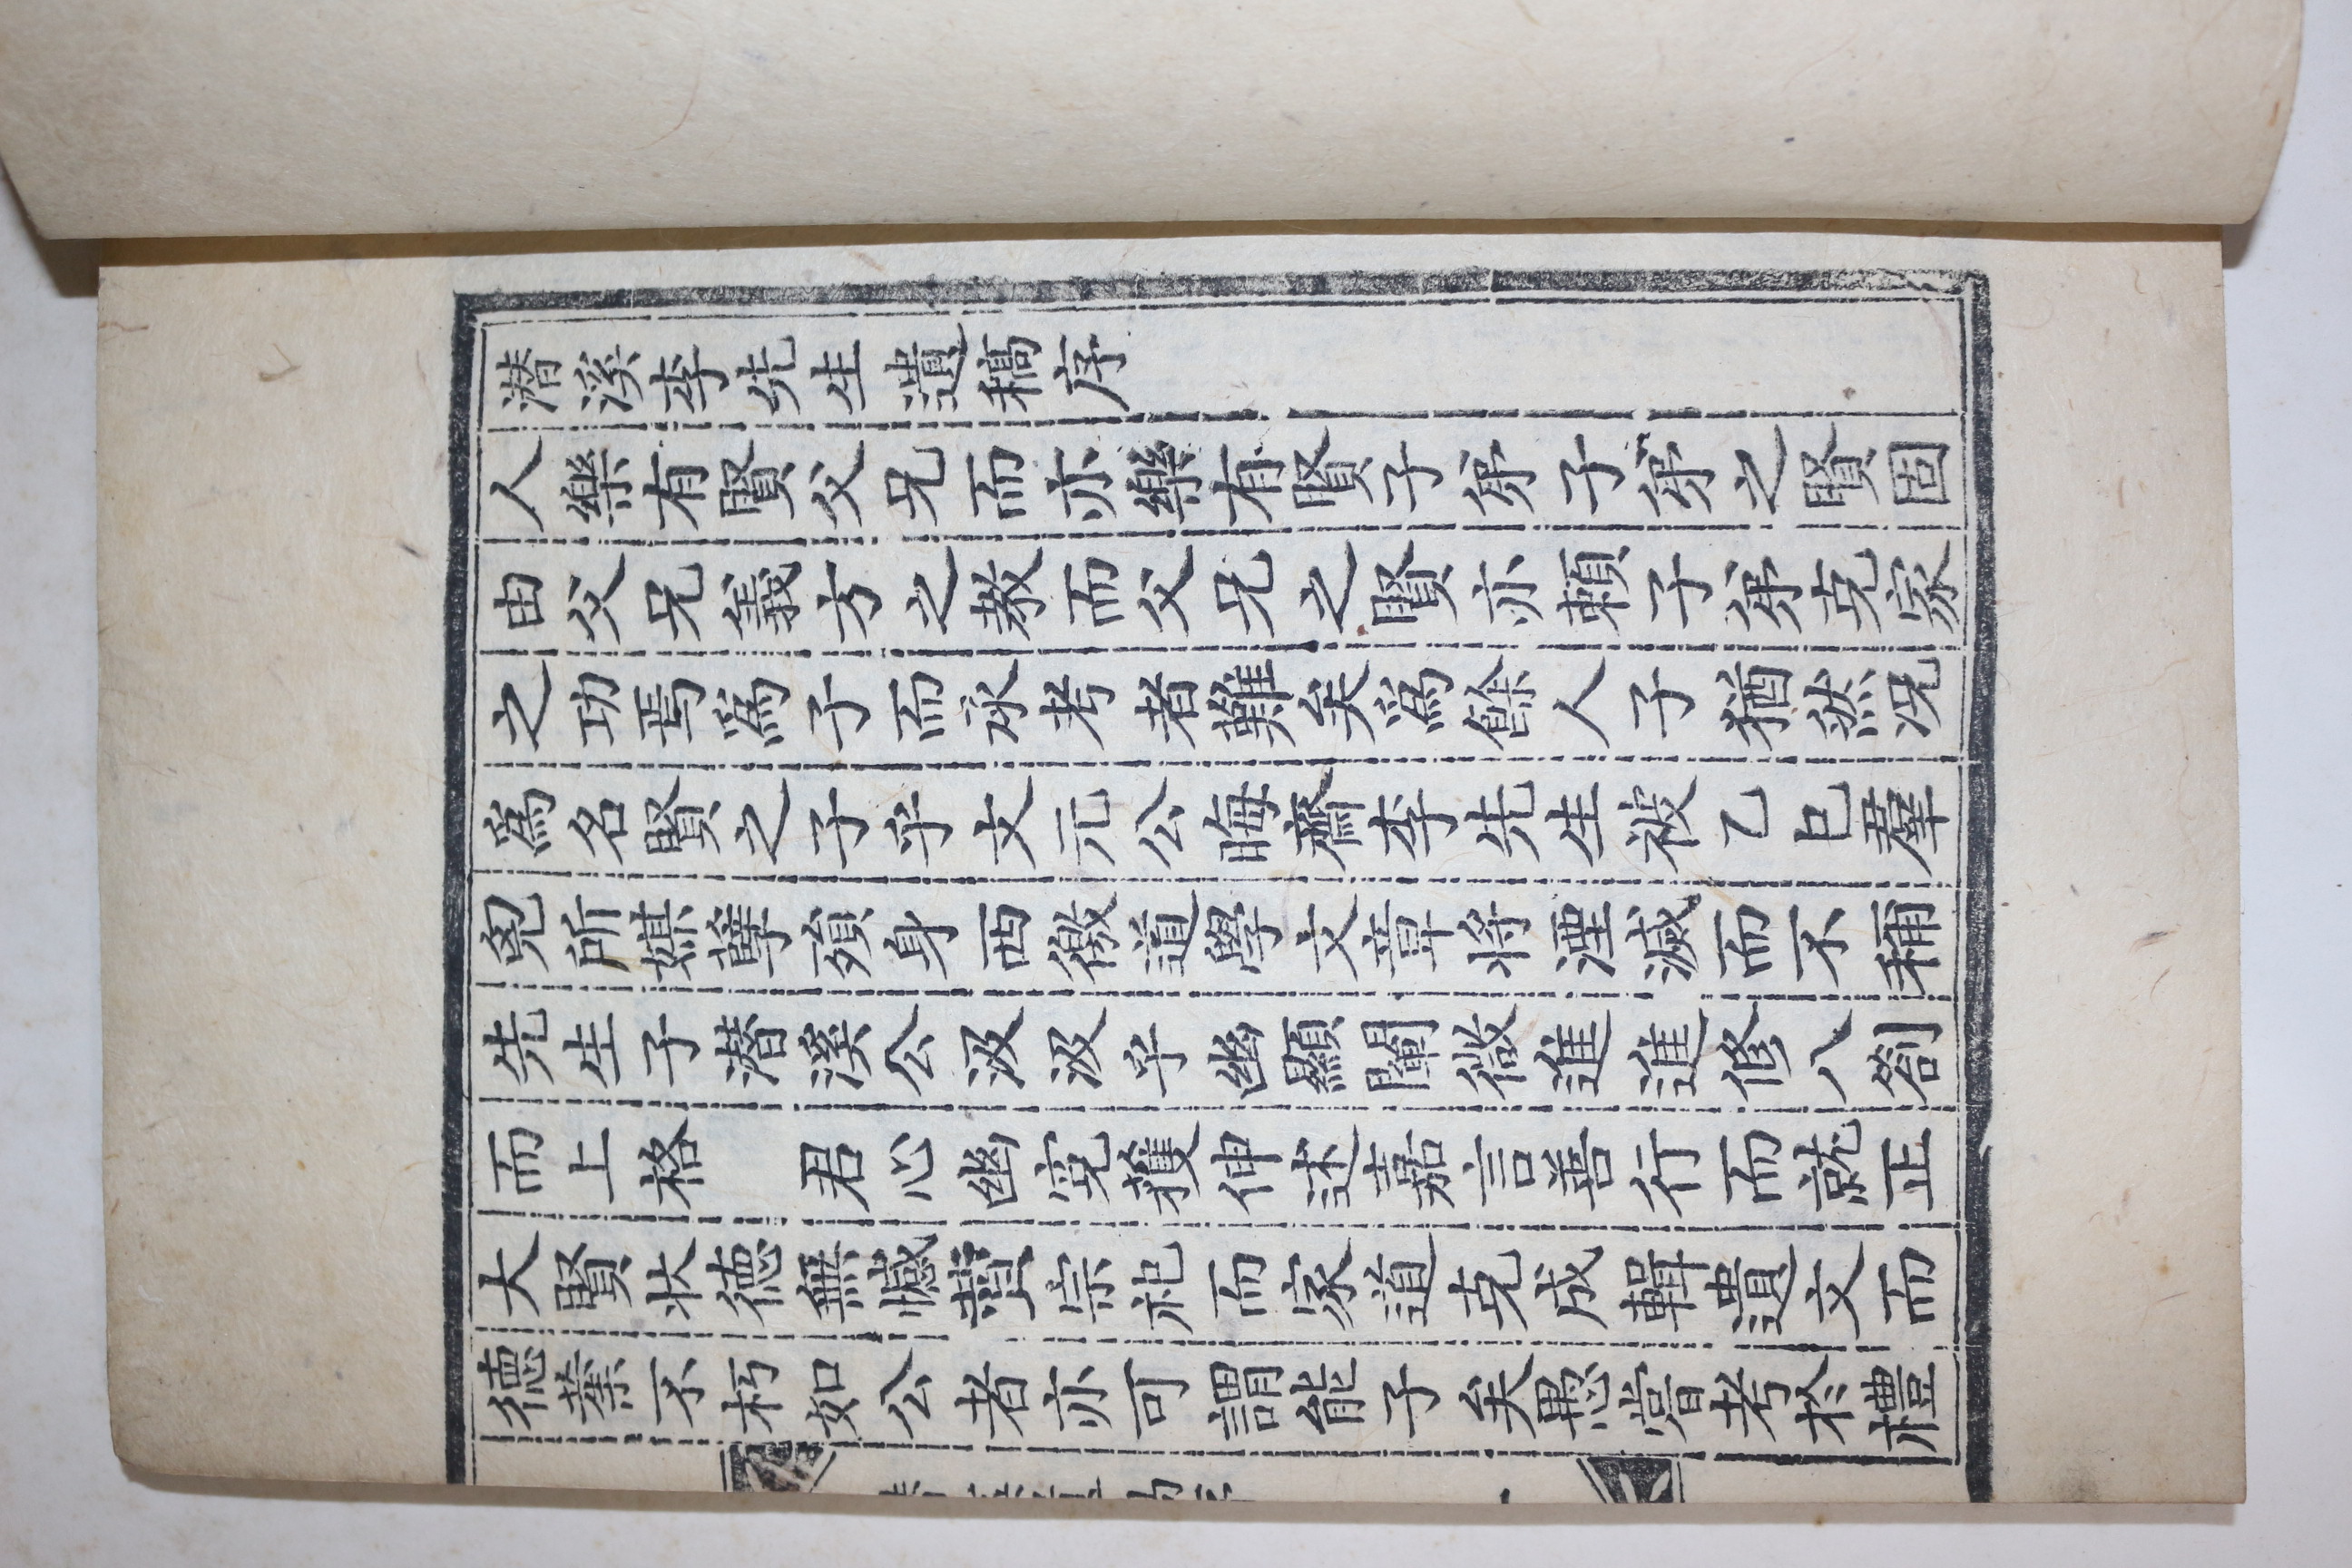 潛溪李先生遺稿序
人樂有賢父兄而亦樂有賢子弟子弟之賢固
由父兄義方之教而父兄之賢亦賴子弟克家
之功焉爲子而承考者難矣爲餘人子猶然况
爲名賢之子乎文元公晦齋李先生被乙巳羣
兇所媒孽殞身西徼道學文章將湮滅而不稱
先生子潛溪公汲汲乎幽顯闡微進進修八劄
而上格 君心幽寃獲伸述嘉言善行而就正
大賢狀德無憾宗祀而家道克成輯遺文而
德業不朽如公者亦可謂能子矣愚嘗考於禮